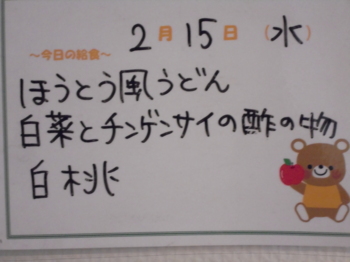 2月15日(水)
～今日の給食～
ほうとう風うどん
白菜とチンゲンサイの酢の物
白桃